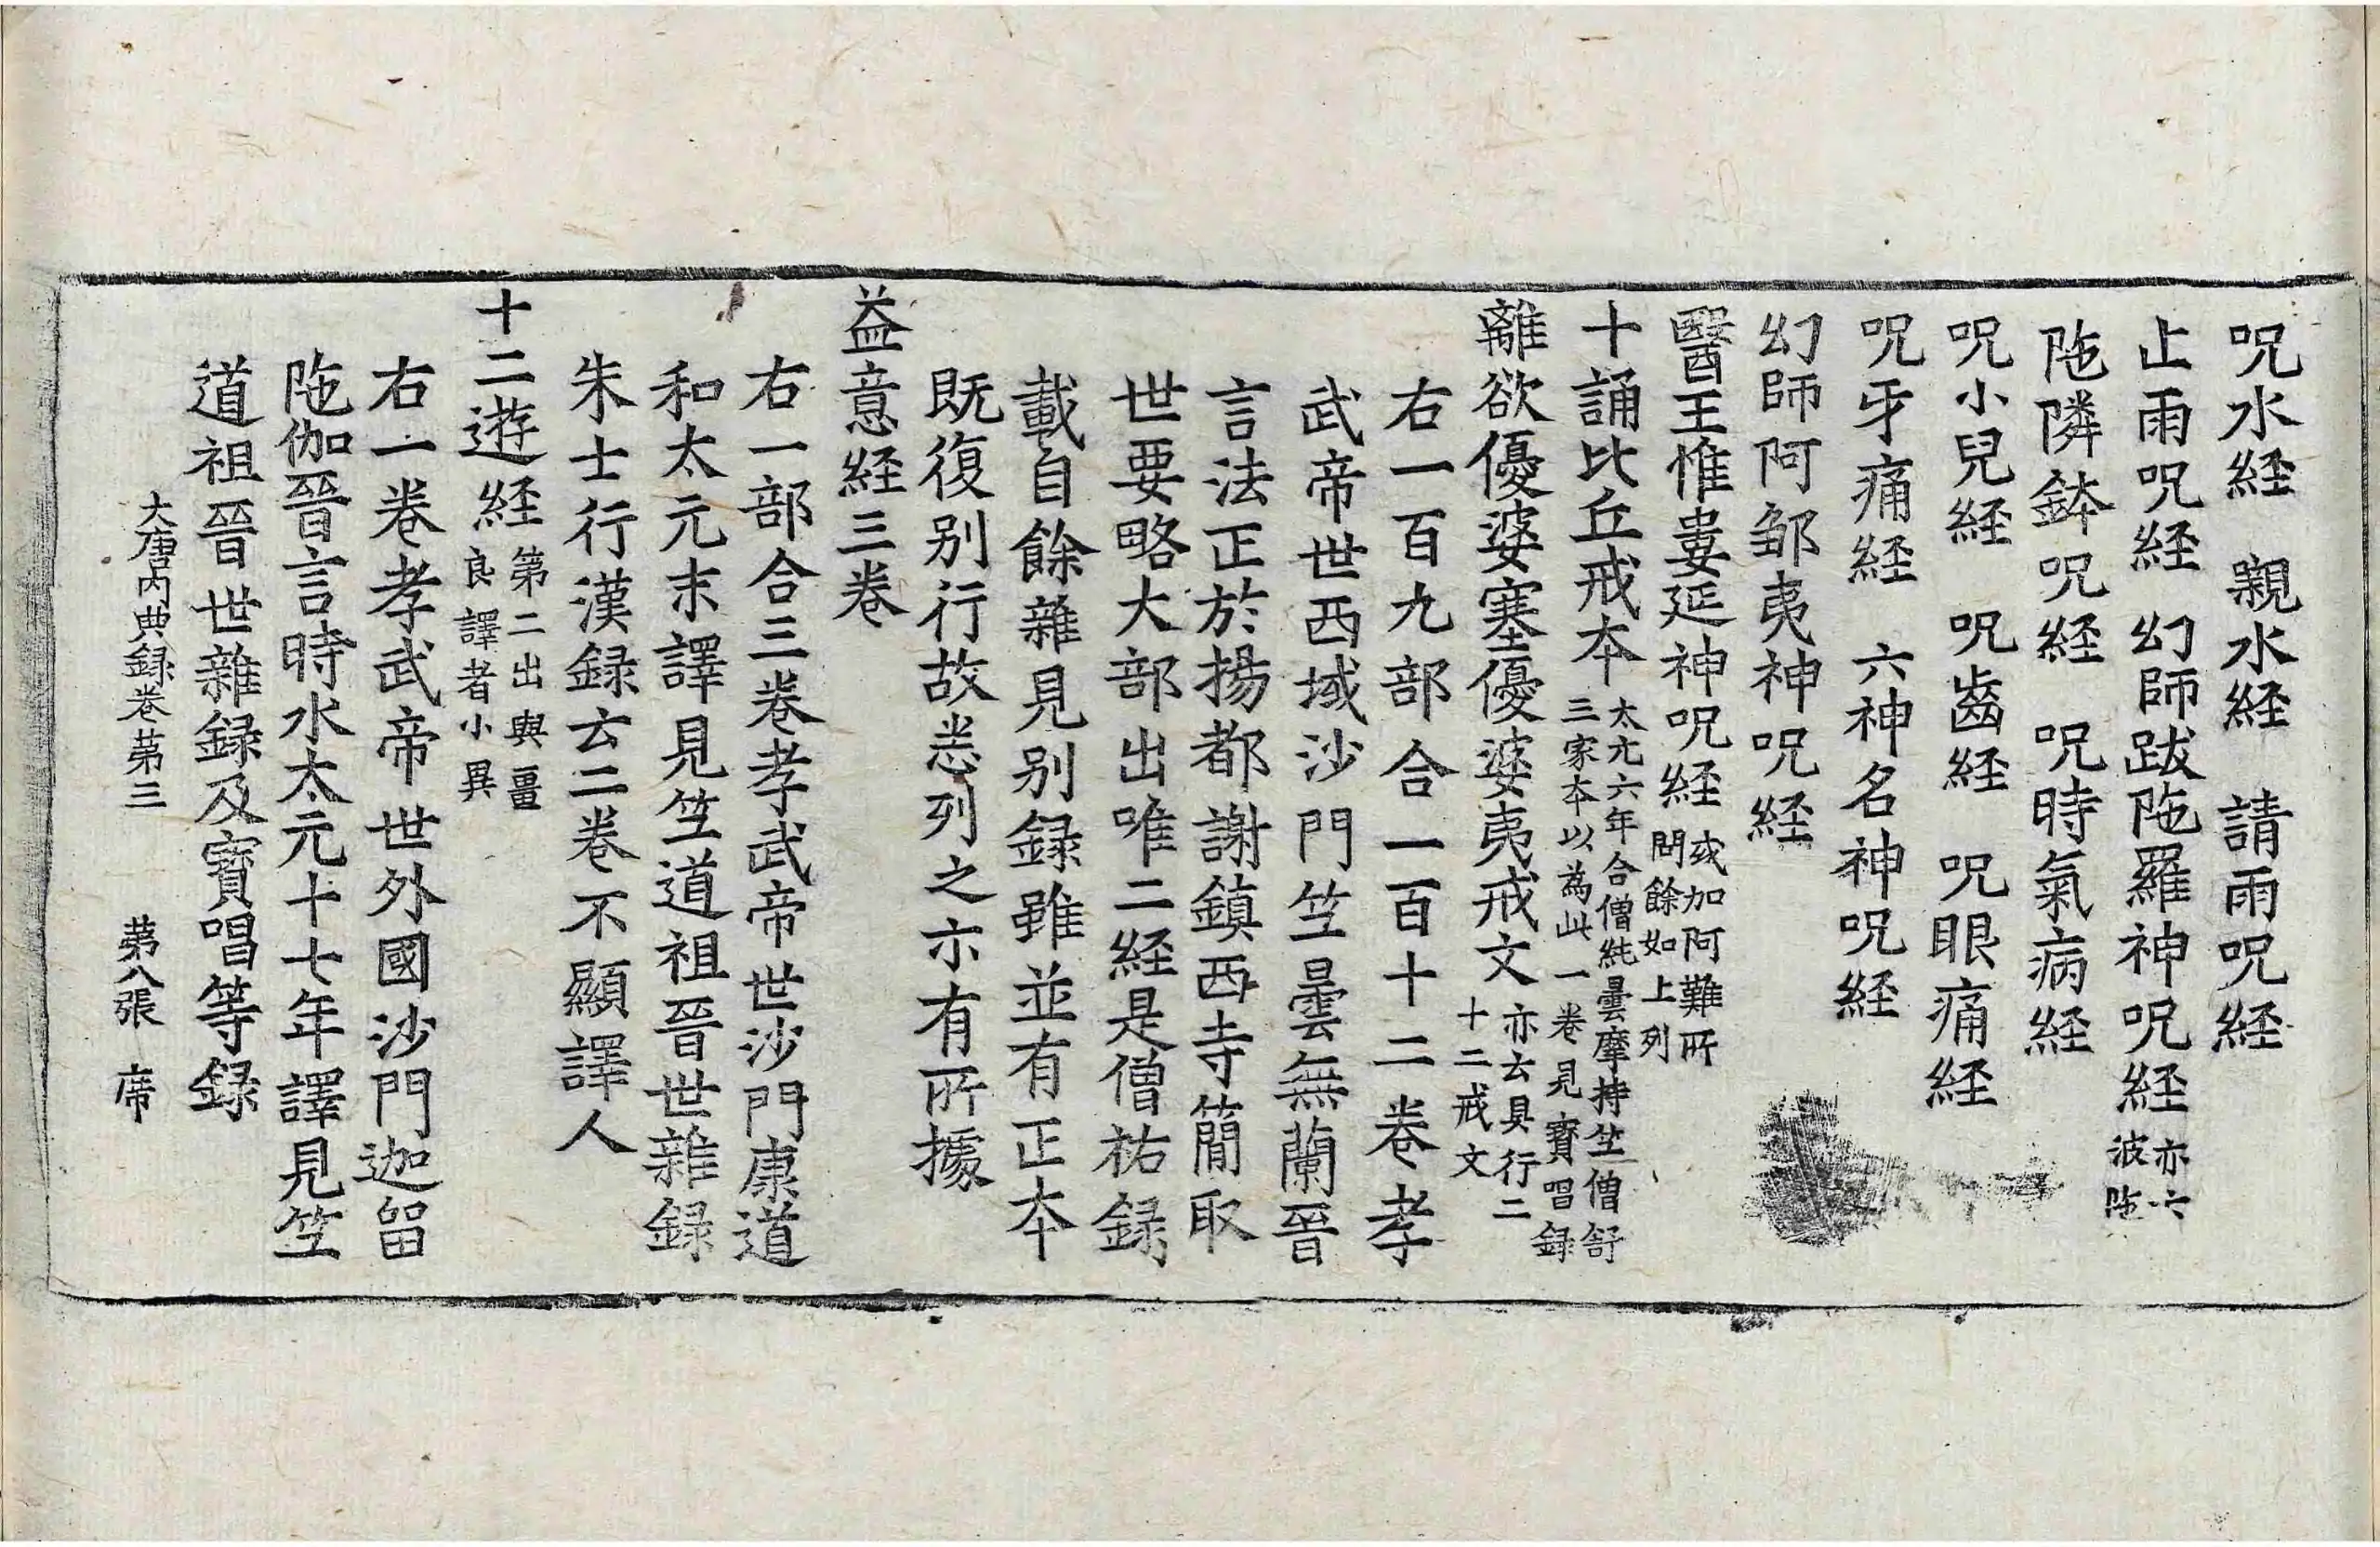 呪水経 親水経 請雨呪経
止雨呪経 幻師跋陁羅神呪経 亦云波陁
陁隣鉢呪経 呪時氣病経
呪小兒経 呪齒経 呪眼痛経
呪牙痛経 六神名神呪経
幻師阿邹夷神呪経
醫王惟婁延神呪経 或加阿難所問餘如上列
十誦比丘戒本 太元六年合僧純曇摩持竺僧舒三家本以為此一卷見寶唱録
離欲優婆塞優婆夷戒文 亦云具行二十二戒文
右一百九部合一百十二卷孝
武帝世西域沙門竺曇無蘭晉
言法正於揚都謝鎮西寺簡取
世要略大部出唯二経是僧祐録
載自餘雜見别録雖並有正本
既復别行故悉列之亦有所據
益意経三卷
右一部合三卷孝武帝世沙門康道
和太元末譯見竺道祖晉世雜録
朱士行漢録云二卷不顯譯人
十二遊経 第二出與畺良譯者小異
右一卷孝武帝世外國沙門迦留
陁伽晉言時水太元十七年譯見竺
道祖晉世雜録及寶唱等録
大唐内典録卷第三 第八張 席